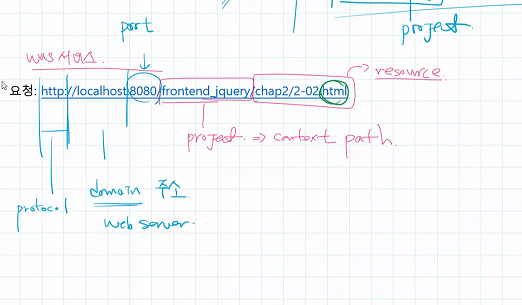 project
port
was 서비스.
resource
요청: http://localhost:8080/frontend_jquery/chap2/2-02/html
project. => context path.
domain 주소
protocol
web server.